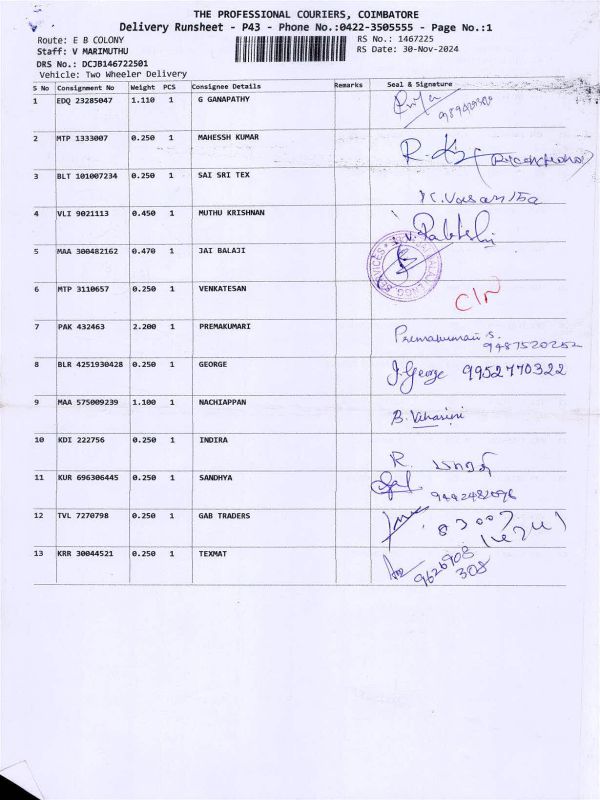 THE PROFESSIONAL COURIERS, COIMBATORE
Delivery Runsheet - P43 - Phone No.:0422-3505555 - Page No.:1
Route: E B COLONY RS No.: 1467225
Staff: V MARIMUTHU RS Date: 30-Nov-2024
DRS No.: DCJB146722501
Vehicle: Two Wheeler Delivery
S No Consignment No Weight PCS Consignee Details Remarks Seal & Signature
1 EDQ 23285047 1.110 1 G GANAPATHY
2 MTP 1333007 0.250 1 MAHESSH KUMAR
3 BLT 101007234 0.250 1 SAI SRI TEX
K. Vasantha
4 VLI 9021113 0.450 1 MUTHU KRISHNAN
5 MAA 300482162 0.470 1 JAI BALAJI
6 MTP 3110657 0.250 1 VENKATESAN
7 PAK 432463 2.200 1 PREMAKUMARI Premakumari S.
9487520252
8 BLR 4251930428 0.250 1 GEORGE J. George 9952770322
9 MAA 575009239 1.100 1 NACHIAPPAN
10 KDI 222756 0.250 1 INDIRA
11 KUR 696306445 0.250 1 SANDHYA
9442482096
12 TVL 7270798 0.250 1 GAB TRADERS
13 KRR 30044521 0.250 1 TEXMAT
9626908
308